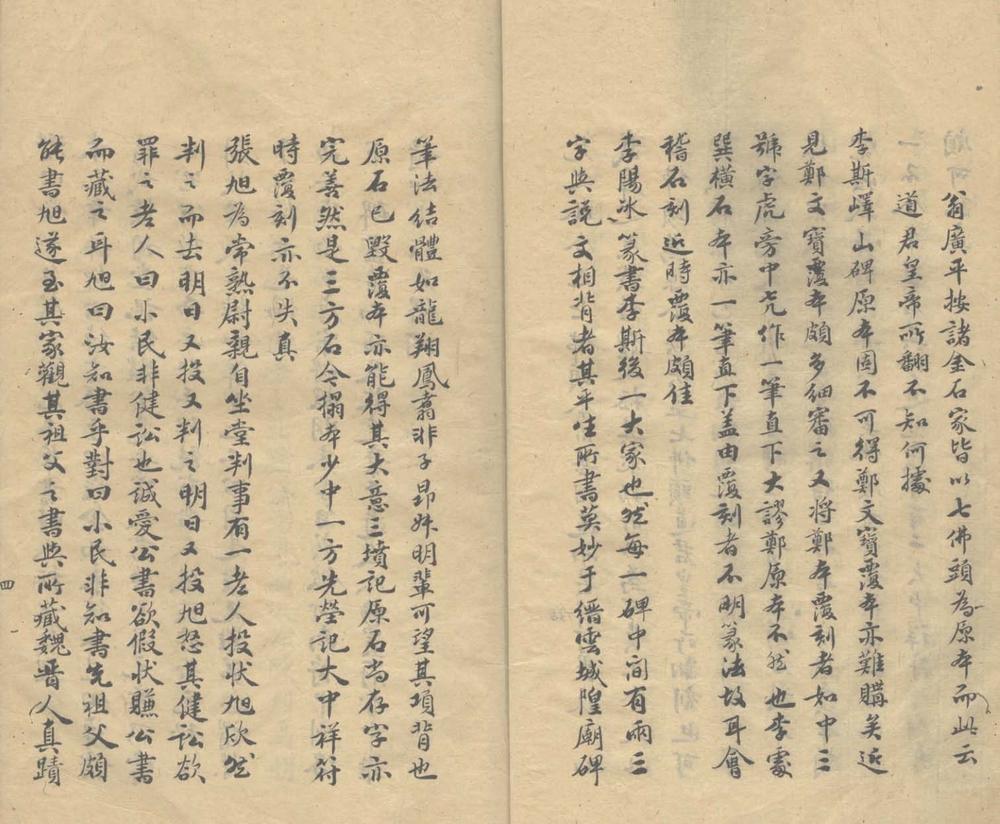 翁廣平按諸金石家皆以七佛頭為原本而此云
道君皇帝所翻不知何據
李斯嶧山碑原本固不可得鄭文寶覆本亦難購矣近
見鄭文寶覆本頗多細審之又將鄭本覆刻者如中三
號字虎旁中尣作一筆直下大謬鄭原本不然也李處
巽橫石本亦一筆直下蓋由覆刻者不明篆法故耳會
稽石刻近時覆本頗佳
李陽冰篆書李斯後一大家也然每一碑中間有兩三
字與說文相背者其平生所書莫妙于縉雲城隍廟碑
筆法結體如龍翔鳳翥非子昂姝明輩可望其項背也
原石已毀覆本亦能得其大意三墳記原石尚存字亦
完善然是三方石今搨本少中一方先塋記大中祥符
時覆刻亦不失真
張旭為常熟尉親自坐堂判事有一老人投狀旭欣然
判之而去明日又投又判之明日又投旭怒其健訟欲
罪之老人曰小民非健訟也誠愛公書欲假狀賺公書
而藏之耳旭曰汝知書乎對曰小民非知書先祖父頗
能書旭遂至其家觀其祖父之書與所藏魏晉人真蹟
四